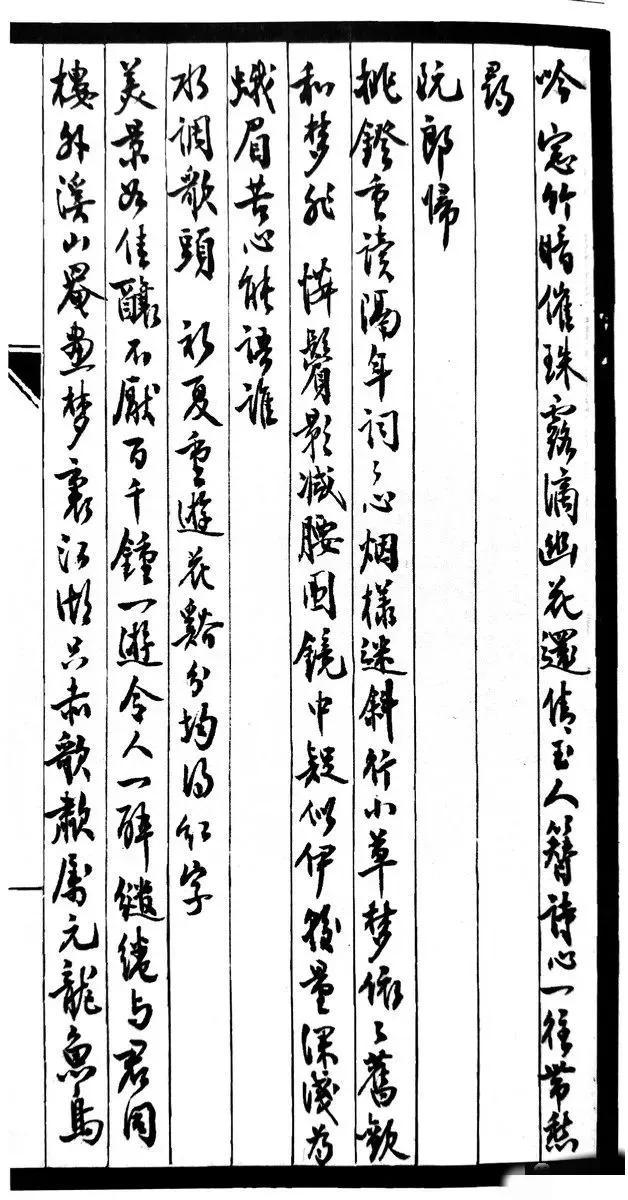 吟 窓竹暗催珠露滴幽花還倩玉人簪詩心一往帶愁
尋
阮郎歸
挑鐙重讀隔年詞〻心烟樣迷斜行小草梦依〻舊歡
和梦非 憐鬢影減腰圍鏡中疑似伊量深淺為
蛾眉苦心能語誰
水調歌頭 初夏重遊花谿分均得紅字
美景如佳釀不厭百千鍾一遊令人一醉繾綣与君同
樓外溪山罨畫梦裏江湖只赤歌歗屬元龍魚鳥